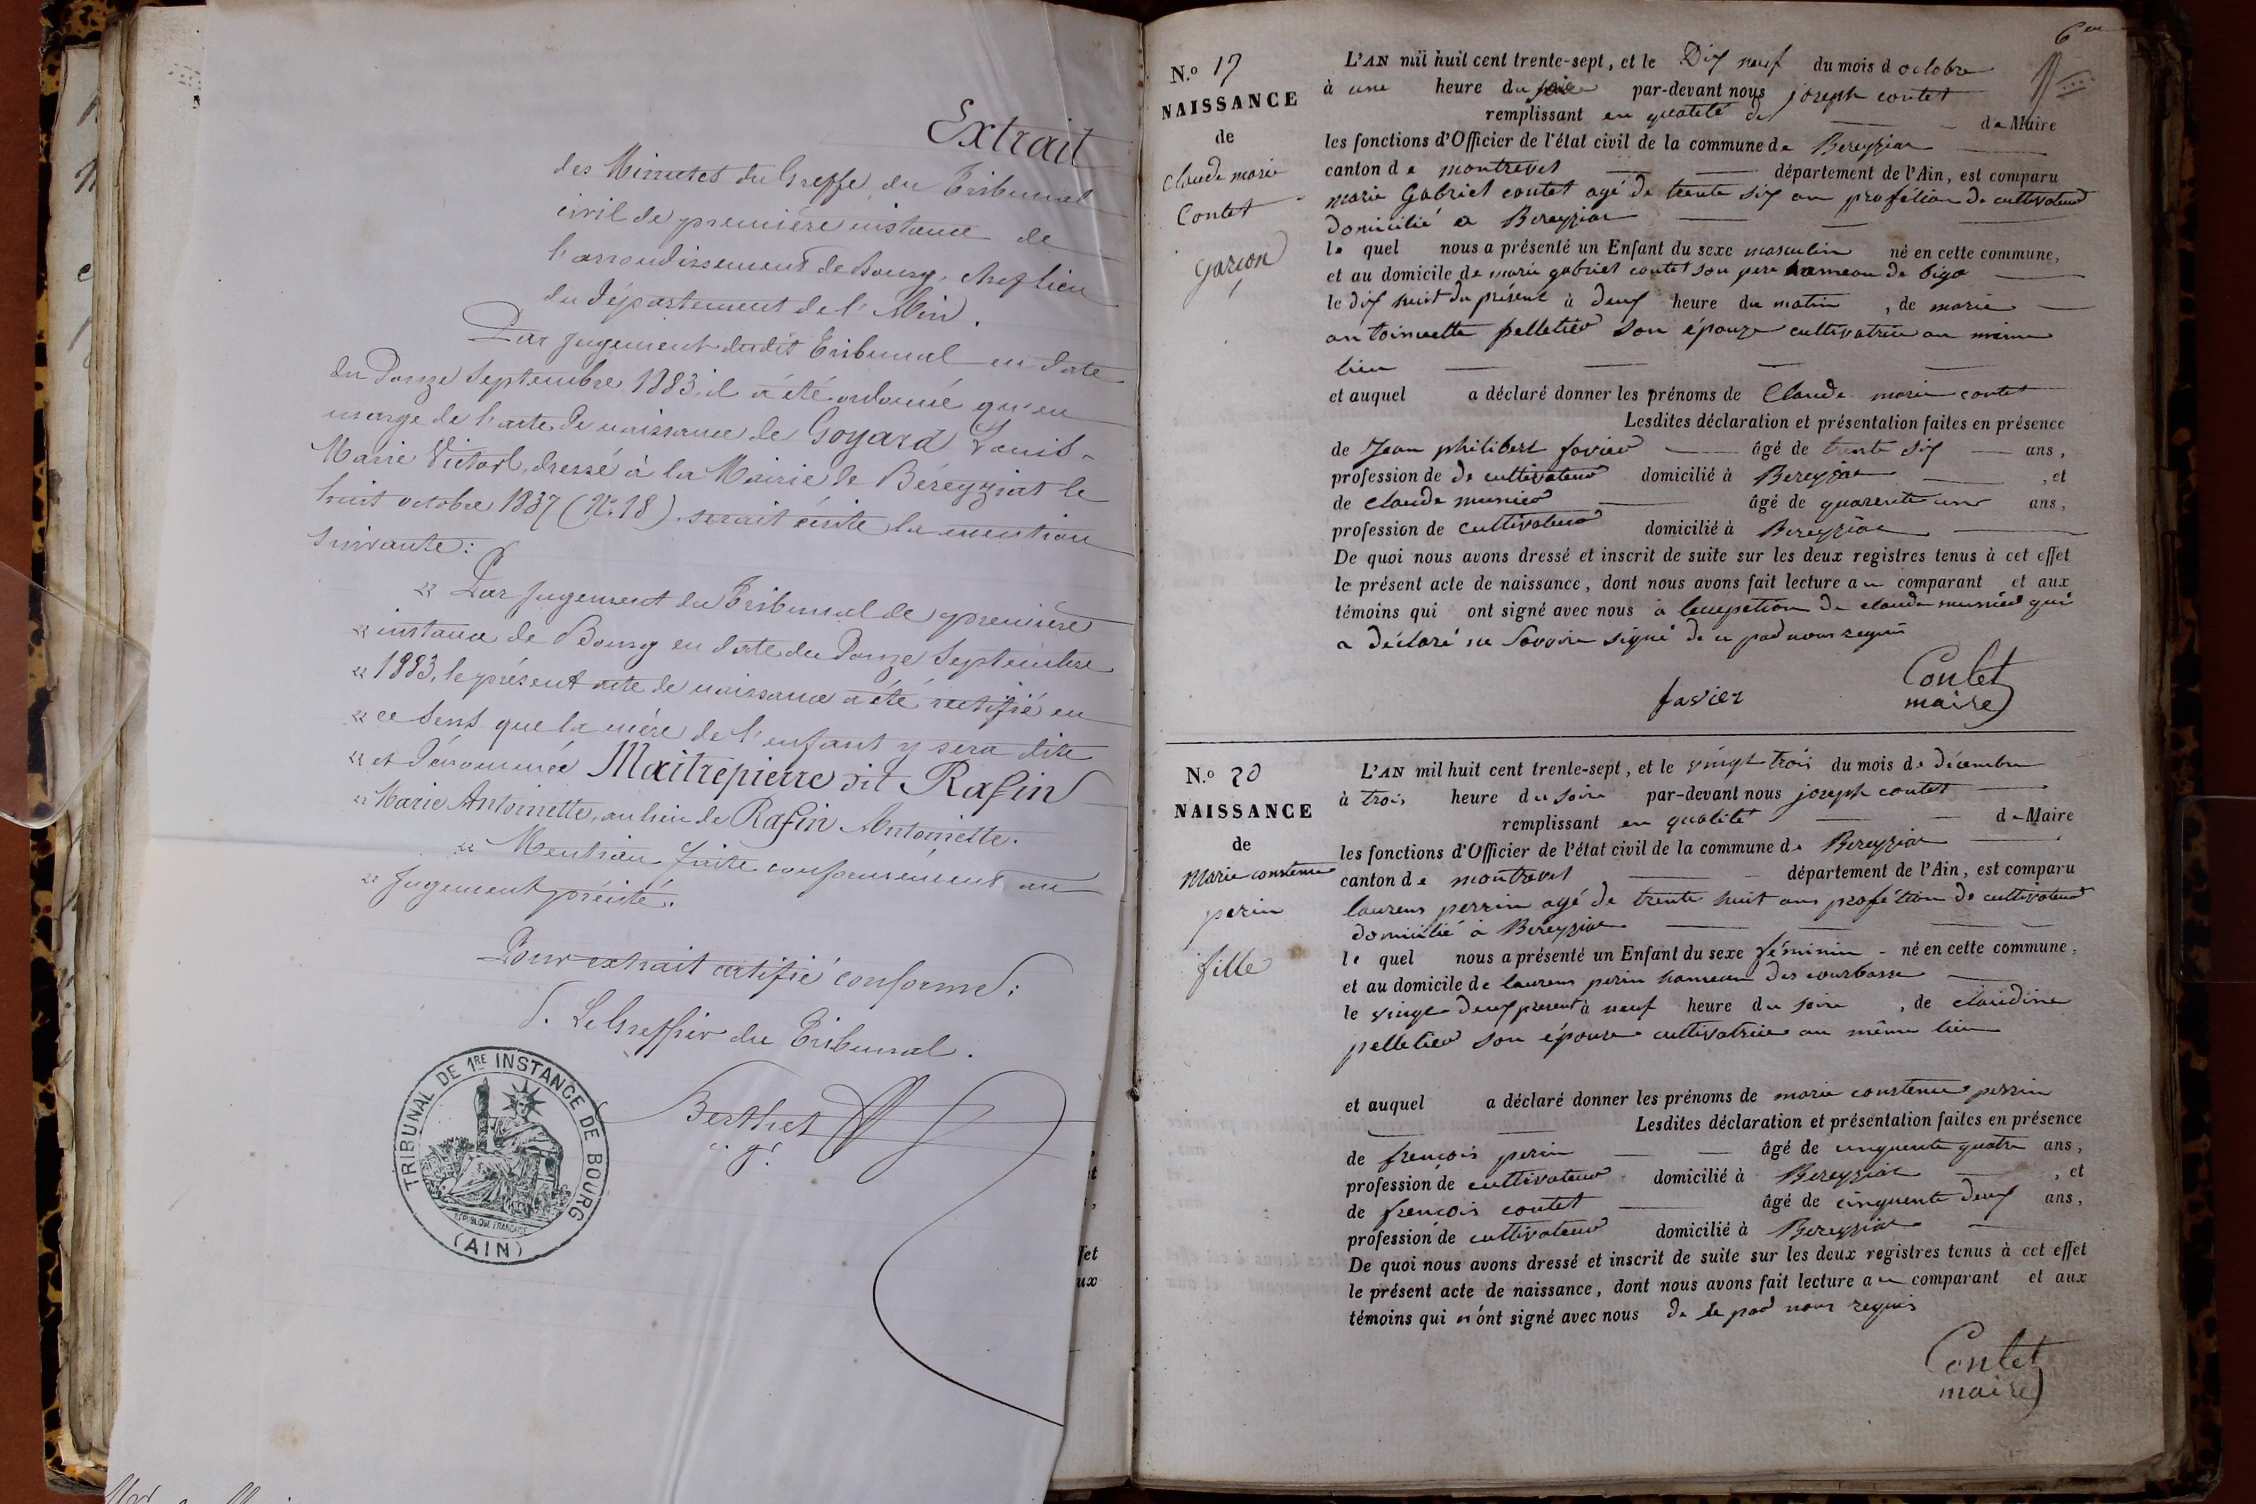 Extrait
des Minutes du Greffe du Tribunal
civil de première instance de
l'arrondissement de Bourg, chef lieu
du département de l'Ain.
Par jugement dudit Tribunal en date
du Douze Septembre 1883, il a été ordonné qu'en
marge de l'acte de naissance de Goyard Louis-
Marie Victor, dressé à la Mairie de Béréyziat le
huit octobre 1837 (N° 18) serait écrite la mention
suivante:
« Par jugement du Tribunal de première
« instance de Bourg en date du Douze Septembre
« 1883, le présent acte de naissance a été rectifié en
« ce sens que la mère de l'enfant y sera dite
« et dénommée Maitrepierre dit Rafin
« Marie Antoinette, au lieu de Rafin Antoinette.
« Mention faite conformément au
« jugement précité.
Pour extrait certifié conforme:
Le Greffier du Tribunal.
Berthet
c. g.
TRIBUNAL DE 1RE INSTANCE DE BOURG
REPUBLIQUE FRANÇAISE
(AIN)
fet
ux
N.o 17
NAISSANCE
de
Claude marie
Contet
garçon
L'AN mil huit cent trente-sept, et le Dix neuf du mois d octobre
à une heure du par-devant nous joseph contet
remplissant en qualité de de Maire
les fonctions d'Officier de l'état civil de la commune de Bereyziat
canton de montrevel département de l'Ain, est comparu
marie Gabriel contet agé de trente six an profétion de cultivateur
domicilié a Bereyziat
le quel nous a présenté un Enfant du sexe masculin né en cette commune,
et au domicile de marie gabriel contet son pere hameau de
le dix huit du présent à deux heure du matin, de marie
antoinette pelletier son épouze cultivatrice au même
lieu
et auquel a déclaré donner les prénoms de Claude marie contet
Lesdites déclaration et présentation faites en présence
de Jean philibert favier âgé de trente six ans,
profession de de cultivateur domicilié à Bereyziat, et
de claude munier âgé de quarente une ans,
profession de cultivateur domicilié à Bereyziat
De quoi nous avons dressé et inscrit de suite sur les deux registres tenus à cet effet
le présent acte de naissance, dont nous avons fait lecture au comparant et aux
témoins qui ont signé avec nous à lecepetion de claude munier qui
a déclaré ne Savoire signé de ce pad nous requis
favier
Contet
maire
N.o 20
NAISSANCE
de
Marie constence
perin
fille
L'AN mil huit cent trente-sept, et le vingt trois du mois de décembre
à trois heure du soire par-devant nous joseph contet
remplissant en qualité de Maire
les fonctions d'Officier de l'état civil de la commune de Bereyziat
canton de montrevel département de l'Ain, est comparu
laurens perrin agé de trente huit ans profétion de cultivateur
domicilié à Bereyziat
le quel nous a présenté un Enfant du sexe féminin né en cette commune,
et au domicile de laurens perin hameau des courbasse
le vingt deux present à neuf heure du soire, de claudine
pelletier son épouse cultivatrice au même lieu
et auquel a déclaré donner les prénoms de marie constence perrin
Lesdites déclaration et présentation faites en présence
de françois perin âgé de cinquente quatre ans,
profession de cultivateur domicilié à Bereyziat, et
de françois contet âgé de cinquente deux ans,
profession de cultivateur domicilié à Bereyziat
De quoi nous avons dressé et inscrit de suite sur les deux registres tenus à cet effet
le présent acte de naissance, dont nous avons fait lecture au comparant et aux
témoins qui n'ont signé avec nous de ce pad nous requis
Contet
maire